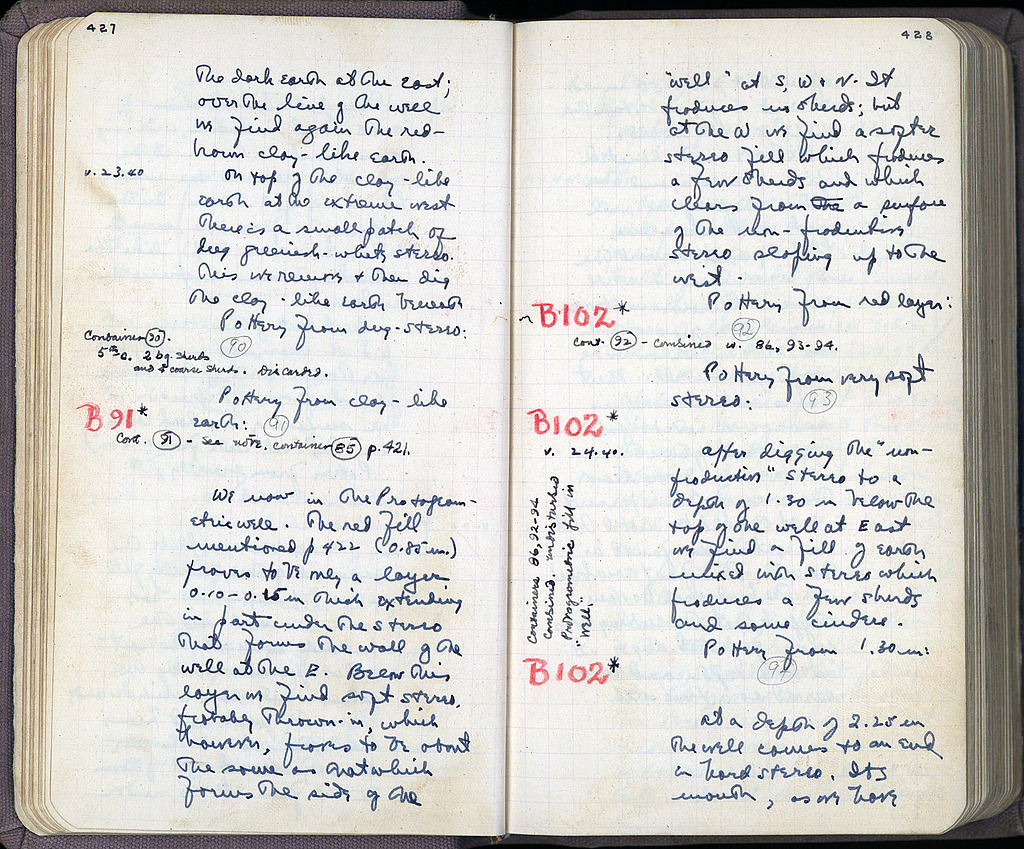 427
The dark earth at the East;
over the line of the well
we find again the red-
brown clay-like earth.
v. 23.40
On top of the clay-like
earth at the extreme west
there is a small patch of
dug greenish-white stereo.
This we remove & then dig
the clay-like earth beneath
Pottery from dug-stereo:
90
Container 90.
5th c. 2 bg. sherds
and 5 coarse sherds. Discarded.
Pottery from clay-like
earth: 91
B91*
Cont. 91 - see note, container 85 p. 421.
We now in the Protogeom-
etric well. The red fill
mentioned p 422 (0.85 m.)
proves to be only a layer
0.10-0.15 m thick extending
in part under the stereo
that forms the wall of the
well at the E. Below this
layer we find soft stereo,
probably thrown-in, which
however, proves to be about
the same as that which
forms the side of the
428
"well" at S, W & N. It
produces no sherds; but
at the W we find a softer
stereo fill which produces
a few sherds and which
clears from the a surface
of the non-productive
stereo sloping up to the
west.
Pottery from red layer:
B102*
92
Cont. 92 - combined w. 86, 93-94.
Pottery from very soft
stereo: 93
B102*
v. 24.40.
After digging the "non-
productive" stereo to a
depth of 1.30 m below the
top of the well at East
we find a fill of earth
mixed with stereo which
produces a few sherds
and some cinders.
Pottery from 1.30 m:
94
Containers 86, 92-94
combined. undisturbed
Protogeometric fill in
"well."
B102*
At a depth of 2.25 m
the well comes to an end
in hard stereo. Its
mouth, as we have